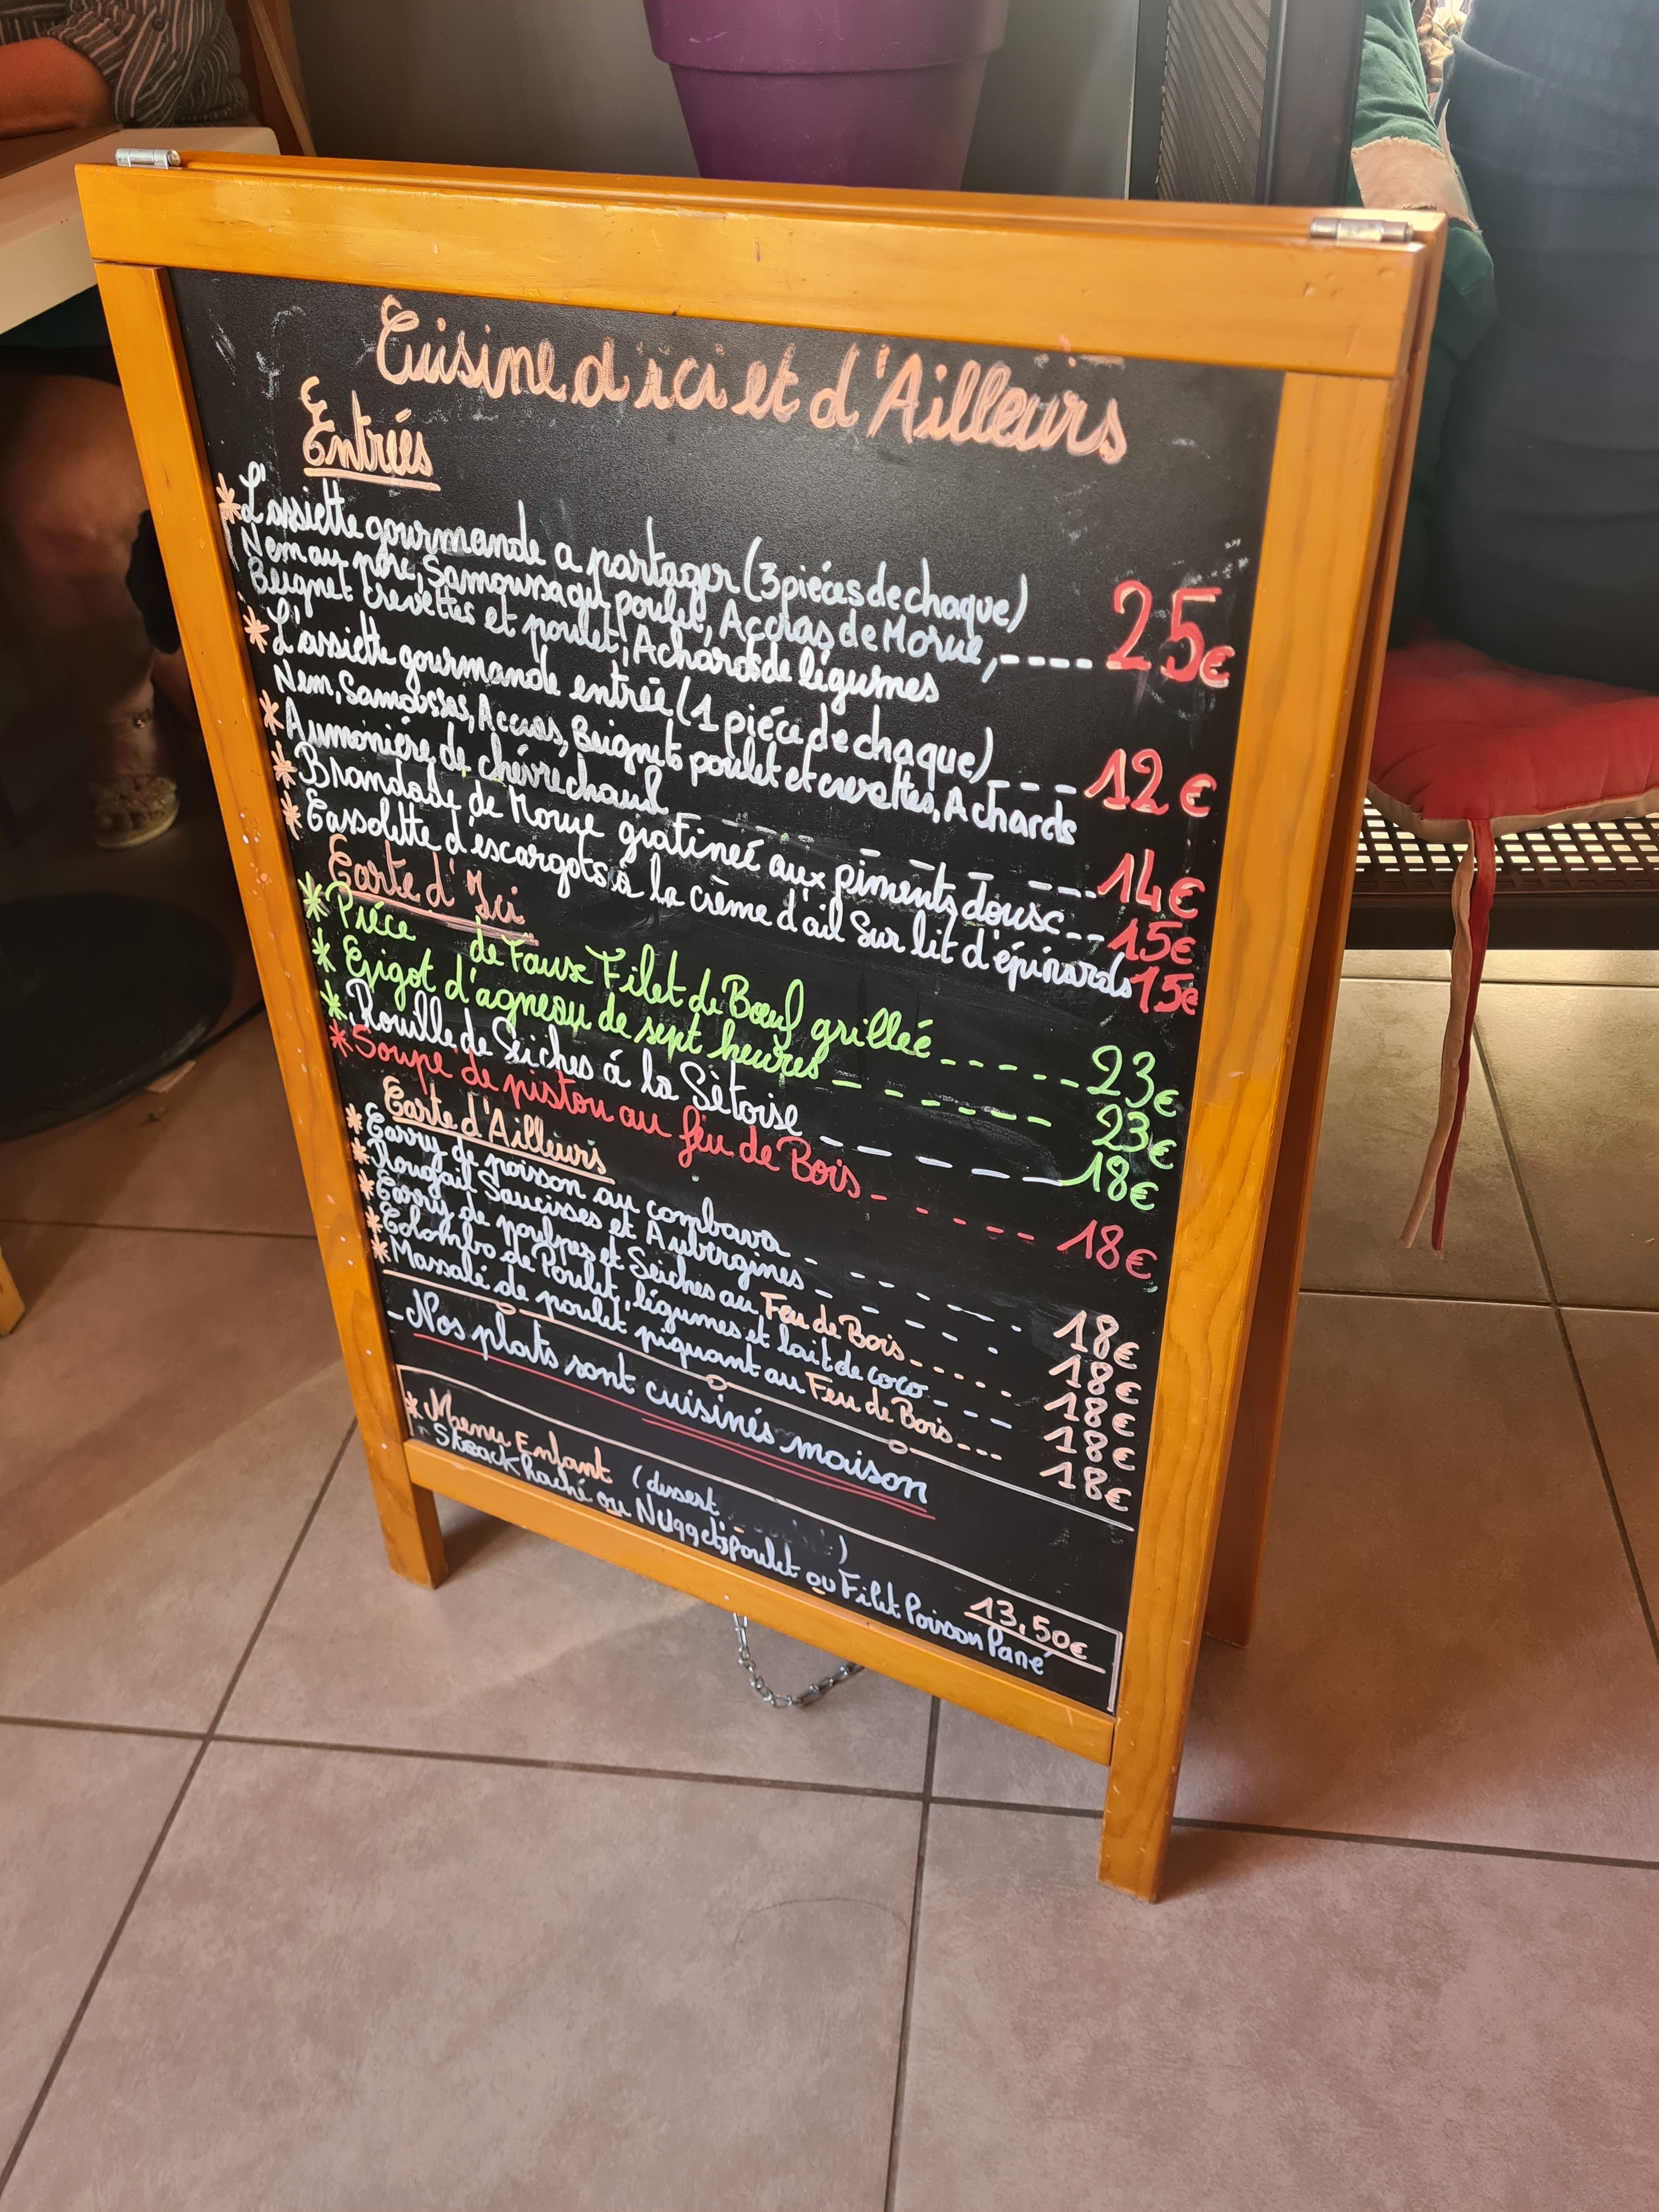 Cuisine d'ici et d'Ailleurs
Entrées
* L'assiette gourmande a partager (3 piéces de chaque)
Nem au porc, Samoussa au poulet, Accras de Morue, ---- 25€
Beignet crevettes et poulet, Achards de légumes
* L'assiette gourmande entrée (1 piéce de chaque) ---- 12€
Nem, Samossas, Accras, Beignets poulet et crevettes, Achards
* Aumoniére de chévre chaud ---- 14€
* Brandade de Morue gratineé aux piments doux -- 15€
* Cassolette d'escargots à la crème d'ail Sur lit d'épinards 15€
Carte d'Ici
* Piéce de Faux Filet de Bœuf grilleé ----- 23€
* Gigot d'agneau de sept heures ----- 23€
* Rouille de Seiches á la Sètoise ---- 18€
* Soupe de pistou au feu de Bois ----- 18€
Carte d'Ailleurs
* Carry de poisson au combava ---- 18€
* Rougail Saucisses et Aubergines ---- 18€
* Carry de poulpes et Seiches au Feu de Bois ---- 18€
* Colombo de Poulet, légumes et lait de coco ---- 18€
* Massalé de poulet piquant au Feu de Bois --- 18€
- Nos plats sont cuisinés maison
* Menu Enfant (dessert ) 13,50€
Steack haché ou Nuggets poulet ou Filet Poisson Pané